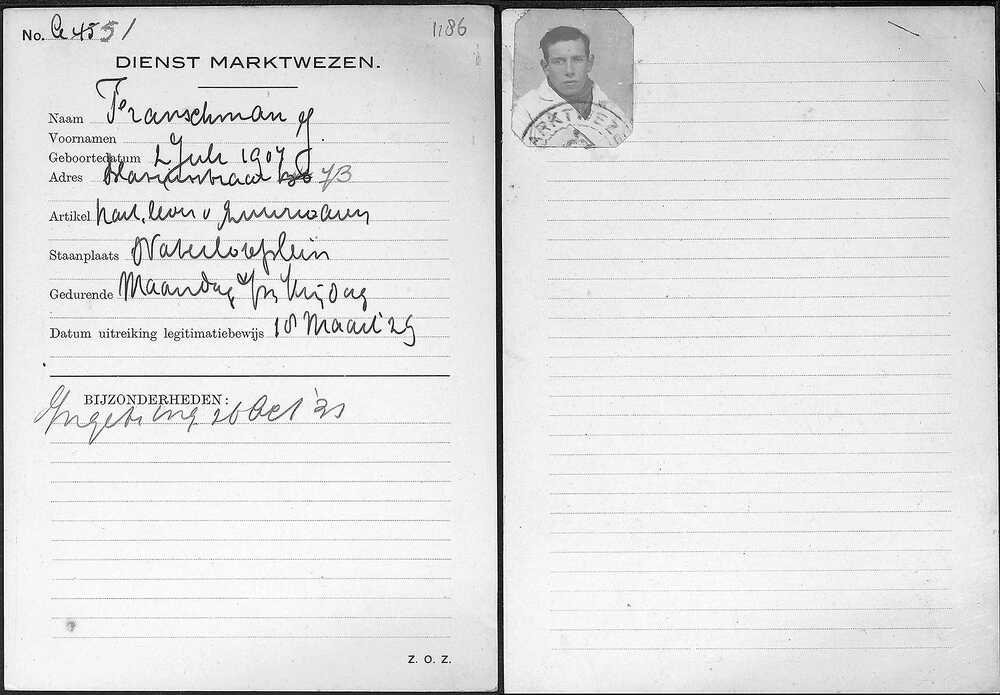 No. A 4551
1186
DIENST MARKTWEZEN.
Naam Franschman J
Voornamen
Geboortedatum 2 Juli 1907
Adres 73
Artikel
Staanplaats Waterlooplein
Gedurende Maandag t/m Vrijdag
Datum uitreiking legitimatiebewijs 18 Maart '29
BIJZONDERHEDEN:
26 Oct '31
Z. O. Z.
MARKTWEZEN